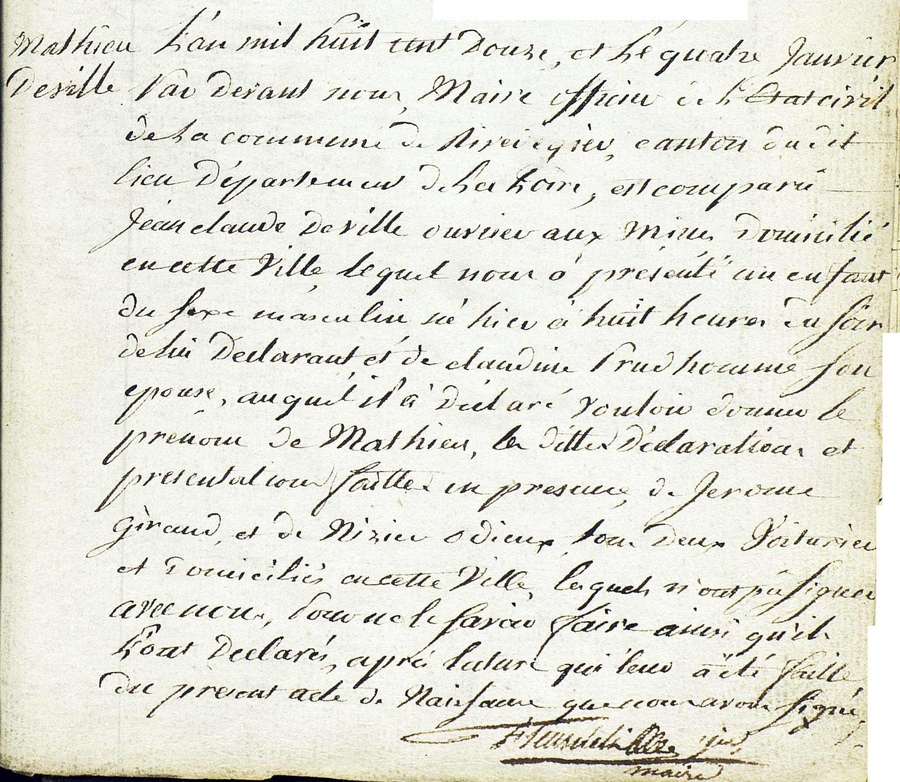 Mathieu L'an mil huit cent Douze, et Le quatre Janvier
Deville Par devant nous, Maire officier de L'Etat civil
de La commune de Rivedegier, canton du dit
lieu Département de La Loire, est comparu
Jean claude Deville ouvrier aux Mines Domicilié
en cette Ville lequel nous à présenté un enfant
du sexe masculin né hier à huit heures du soir
de lui Declarant et de claudine Prudhomme son
epouse, auquel il à Déclaré vouloir donner le
prénom de Mathieu, les dittes Déclarations et
presentations faittes en presence de Jerome
Giraud, et de Nizier odieux, tous Deux Voituriers
et Domiciliés en cette Ville, lesquels n'ont pu signer
avec nous, Pour ne le savoir faire ainsi qu'ils
L'ont Declarés, après lecture qui leur à été faitte
du present acte de Naissance que nous avons signé,
maire